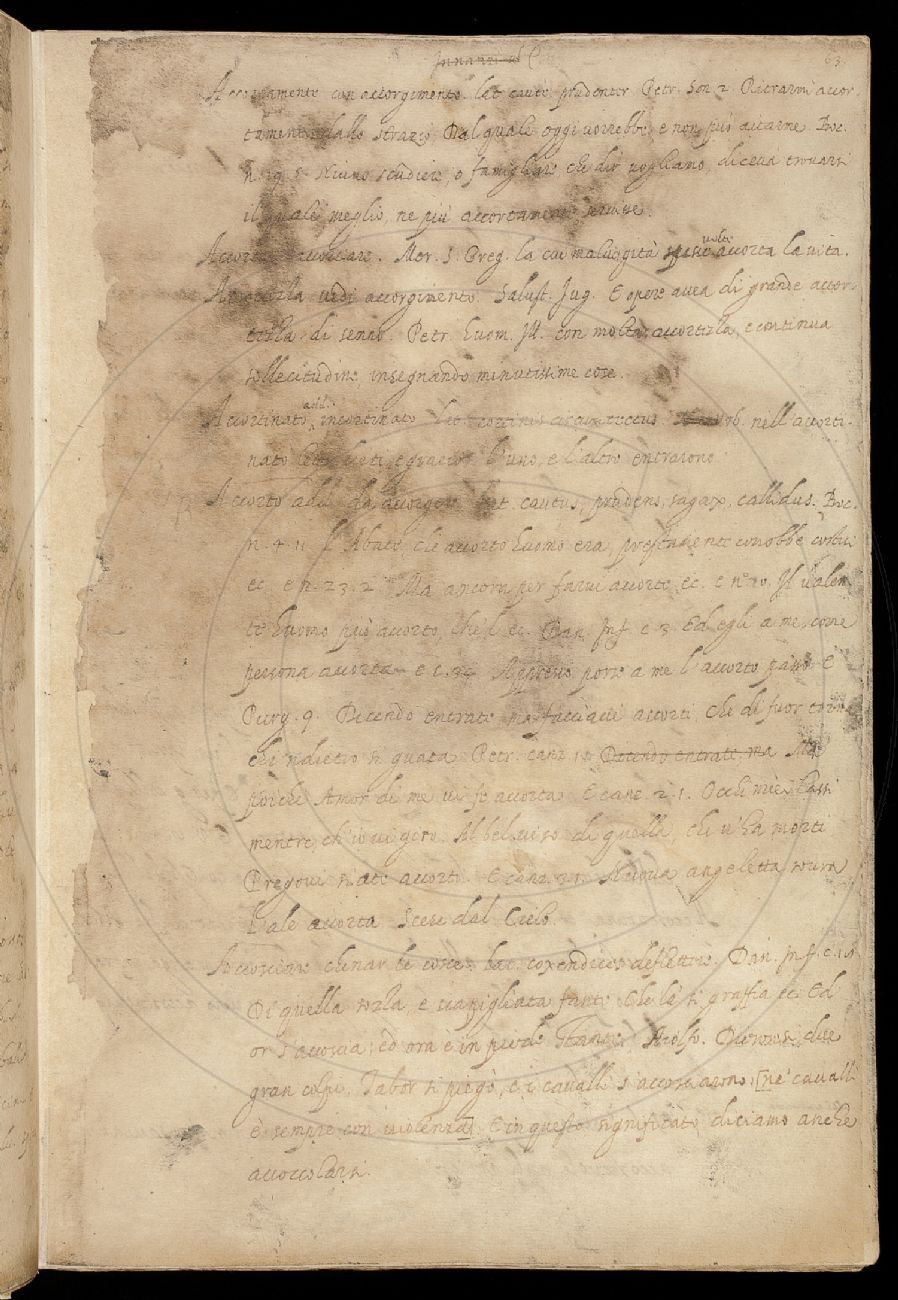 Innanzi al C
Accortamente con accorgimento. lat. caute prudenter Petr. Son. 2. Ritrarmi accor-
tamente dallo strazio, Dal quale oggi vorrebbe, e non può aitarme Boc.
n. 19. 5. Niuno scudiere, o famigliare che dir vogliamo, diceva trovarsi
il quale meglio, ne più accortamente servisse.
accorciare. Mor. S. Greg. la cui malvagità molte accorta la vita.
vedi accorgimento. Salust. Jug. E opere avea di grande accor-
tezza di senno. Petr. huom. Ill. con molta accortezza, e continua
sollecitudine insegnando minutissime cose.
Accortinato add. incortinato lat. cortinis circumtectus. nell accorti-
nato letto lieti, e graziosi l'uno, e l'altro entrarono
Accorto add. da accorgere lat. cautus, prudens, sagax, callidus. Boc.
n. 4. 11. l'Abate, che accorto huomo era, prestamente conobbe costui
ec. e n. 23. 2. Ma ancora per farvi accorte ec. e n. 20. Il valen-
te huomo più accorto, che l ec. Dan. Inf. c. 3. Ed egli a me, come
persona accorta e c. 34. Appresso porse a me l accorto passo E
Purg. 9. Dicendo entrate, ma facciavi accorti, che di fuor torna
chi 'ndietro si guata Petr. canz. Dicendo entrate, ma Ma
poiche Amor di me vi fe accorta E canz. 21. Occhi miei lassi
mentre, ch'io vi giro Nel bel viso di quella, che v'ha morti
Pregovi siate accorti. E canz. 31. Nuova angeletta sovra
l'ale accorta Scese dal Cielo.
Accosciare chinar le cosce. lat. coxendices deflettere. Dan. Inf. c. 18
Di quella sozza, e scapigliata fante Che là si graffia ec. Ed
or s'accoscia, ed ora è in piede stante. Aiolfo. Dieronsi due
gran colpi. Tabor si piegò, e i cavalli s'accosciarono. [ne' cavalli
è sempre con violenza]. E in questo significato diciamo anche
accoccolarsi.